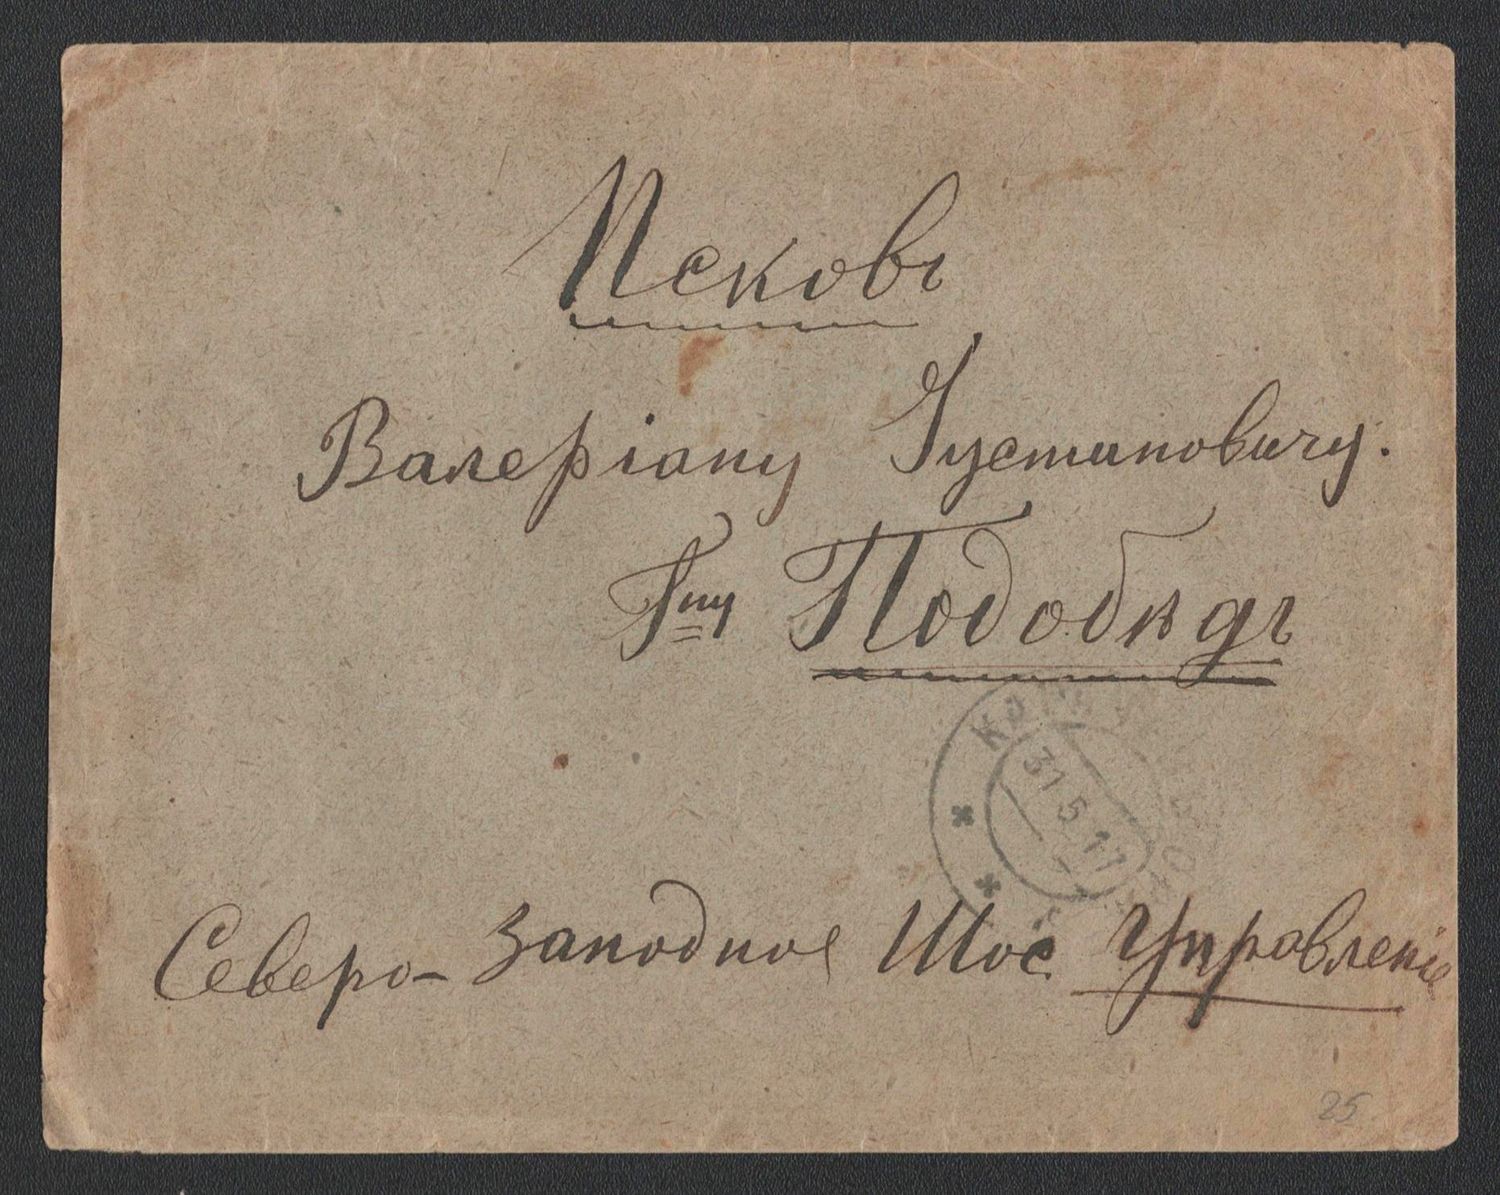 Псковъ
Валеріану Густановичу.
Гну Подобѣдъ
31.5.17
Северо-Западное Шос Управленіе
25